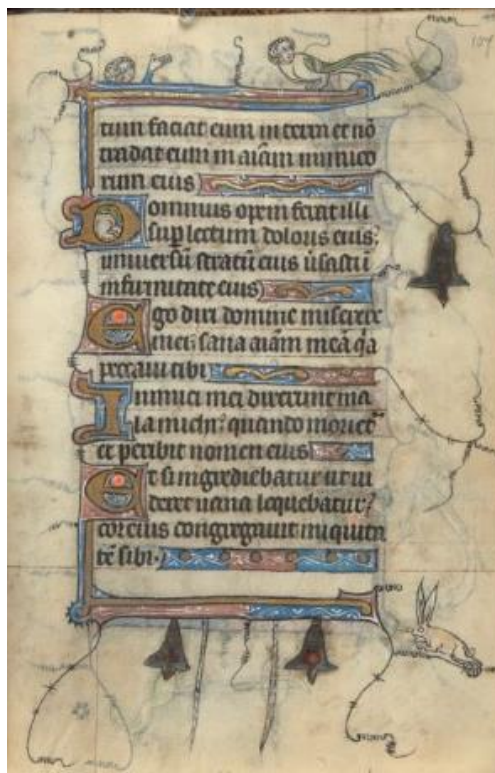 tum faciat eum in terra et nõ
tradat eum in aĩam inimico
rum eius
Dominus opem ferat illi
sup lectum doloris eius:
universũ stratũ eius v̾sasti ĩ
infirmitate eius
Ego dixi domine miserere
mei: sana aĩam meã qa
peccavi tibi
Inimici mei dixerunt ma
la michi: quando moriet᷑
et peribit nomen eius
Et si ingrediebatur ut vi
deret vana loquebatur:
cor eius congregavit iniquita
tẽ sibi.